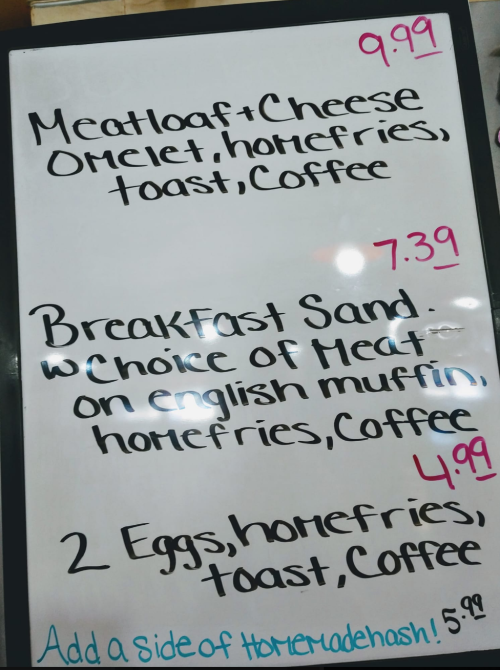 9.99
Meatloaf + Cheese
Omelet, homefries,
toast, Coffee
7.39
Breakfast Sand.
w Choice of Meat
on english muffin,
homefries, Coffee
4.99
2 Eggs, homefries,
toast, Coffee
Add a side of Homemade hash! 5.99